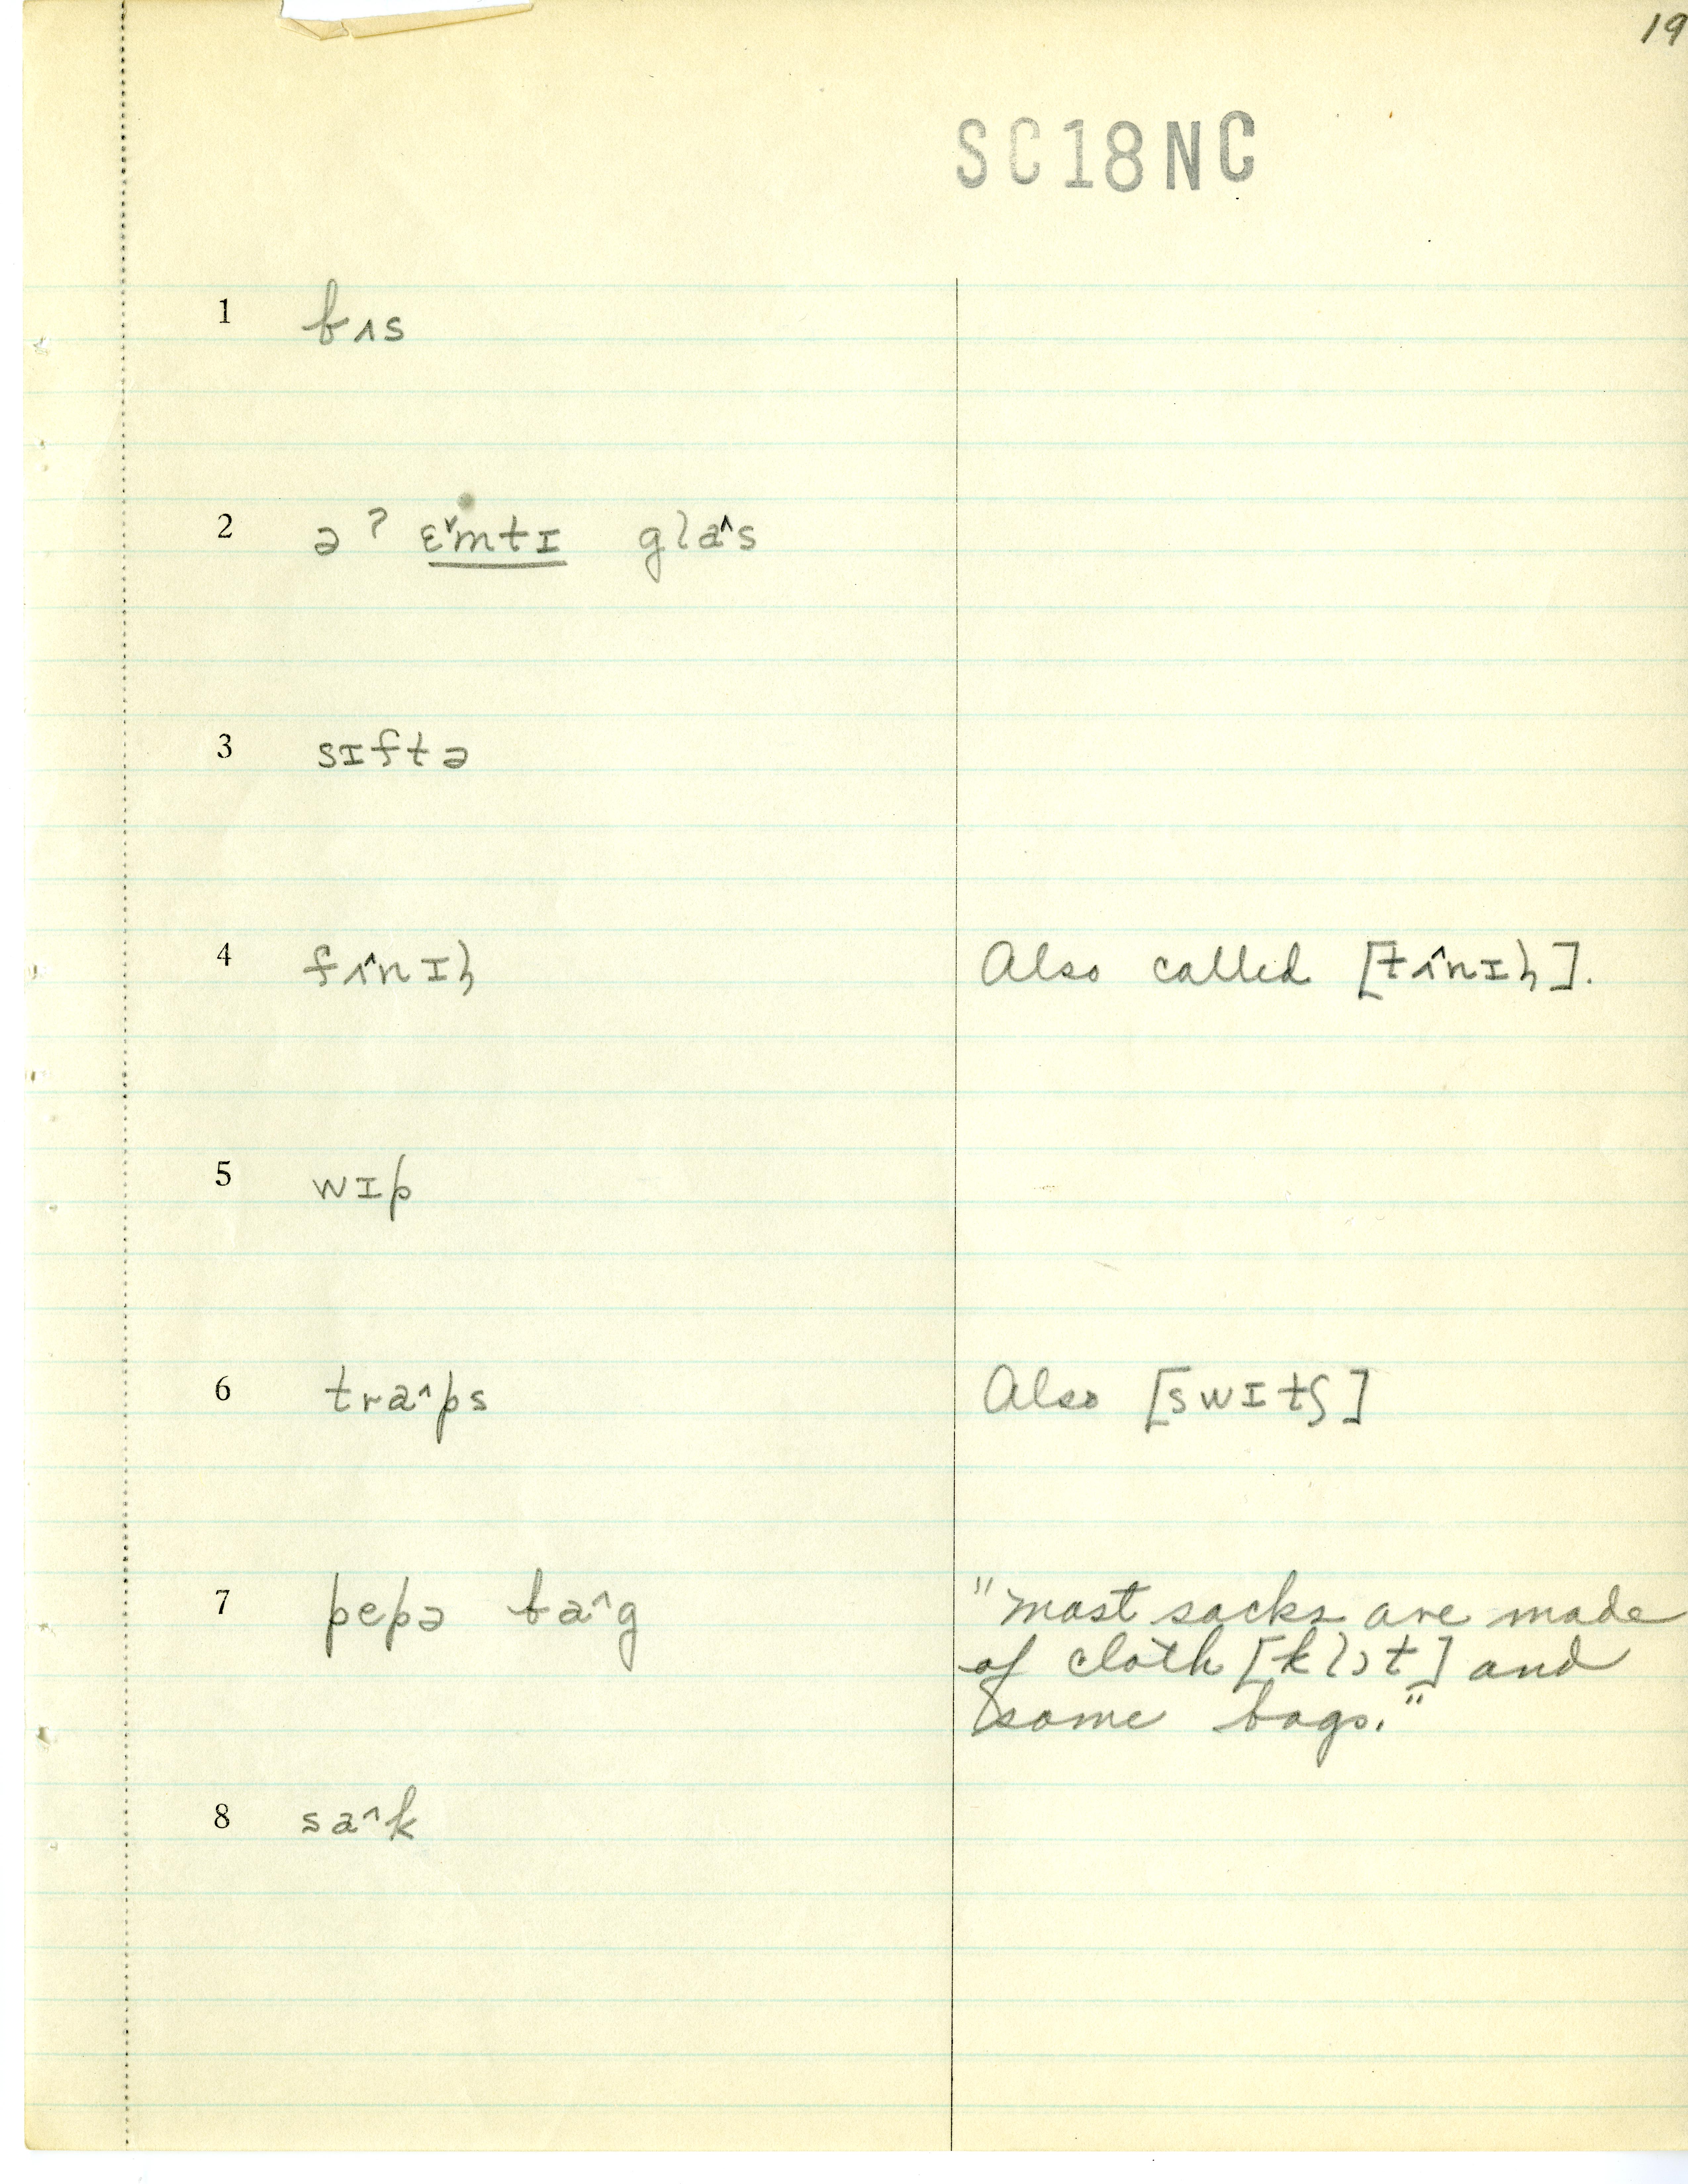 19
SC18NC
1 bʌs
2 ə ʔ ɛ˅mtɪ gla˄s
3 sɪftə
4 fʌ˄nɪɧ Also called [tʌ˄nɪɧ].
5 wɪp
6 tra˄ps Also [swɪtʃ]
7 pepə ba˄g "most sacks are made
of cloth [klɔt] and
some bags."
8 sa˄k